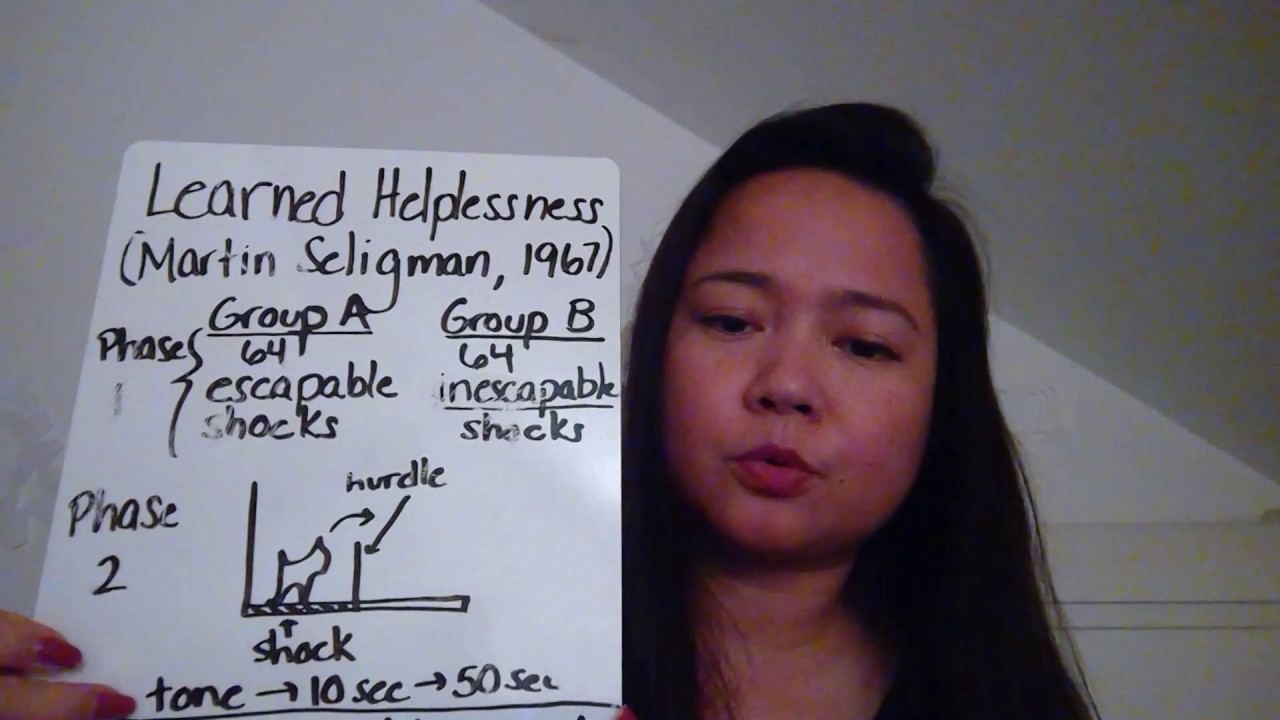 Learned Helplessness
(Martin Seligman, 1967)
Group A Group B
Phase 64 64
1 escapable inescapable
shocks shocks
hurdle
Phase
2
shock
tone → 10 sec → 50 sec